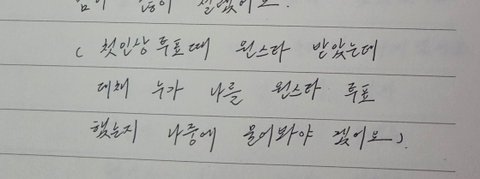 많이 설렜어요.
( 첫인상 투표때 원스타 받았는데
대체 누가 나를 원스타 투표
했는지 나중에 물어봐야 겠어요).